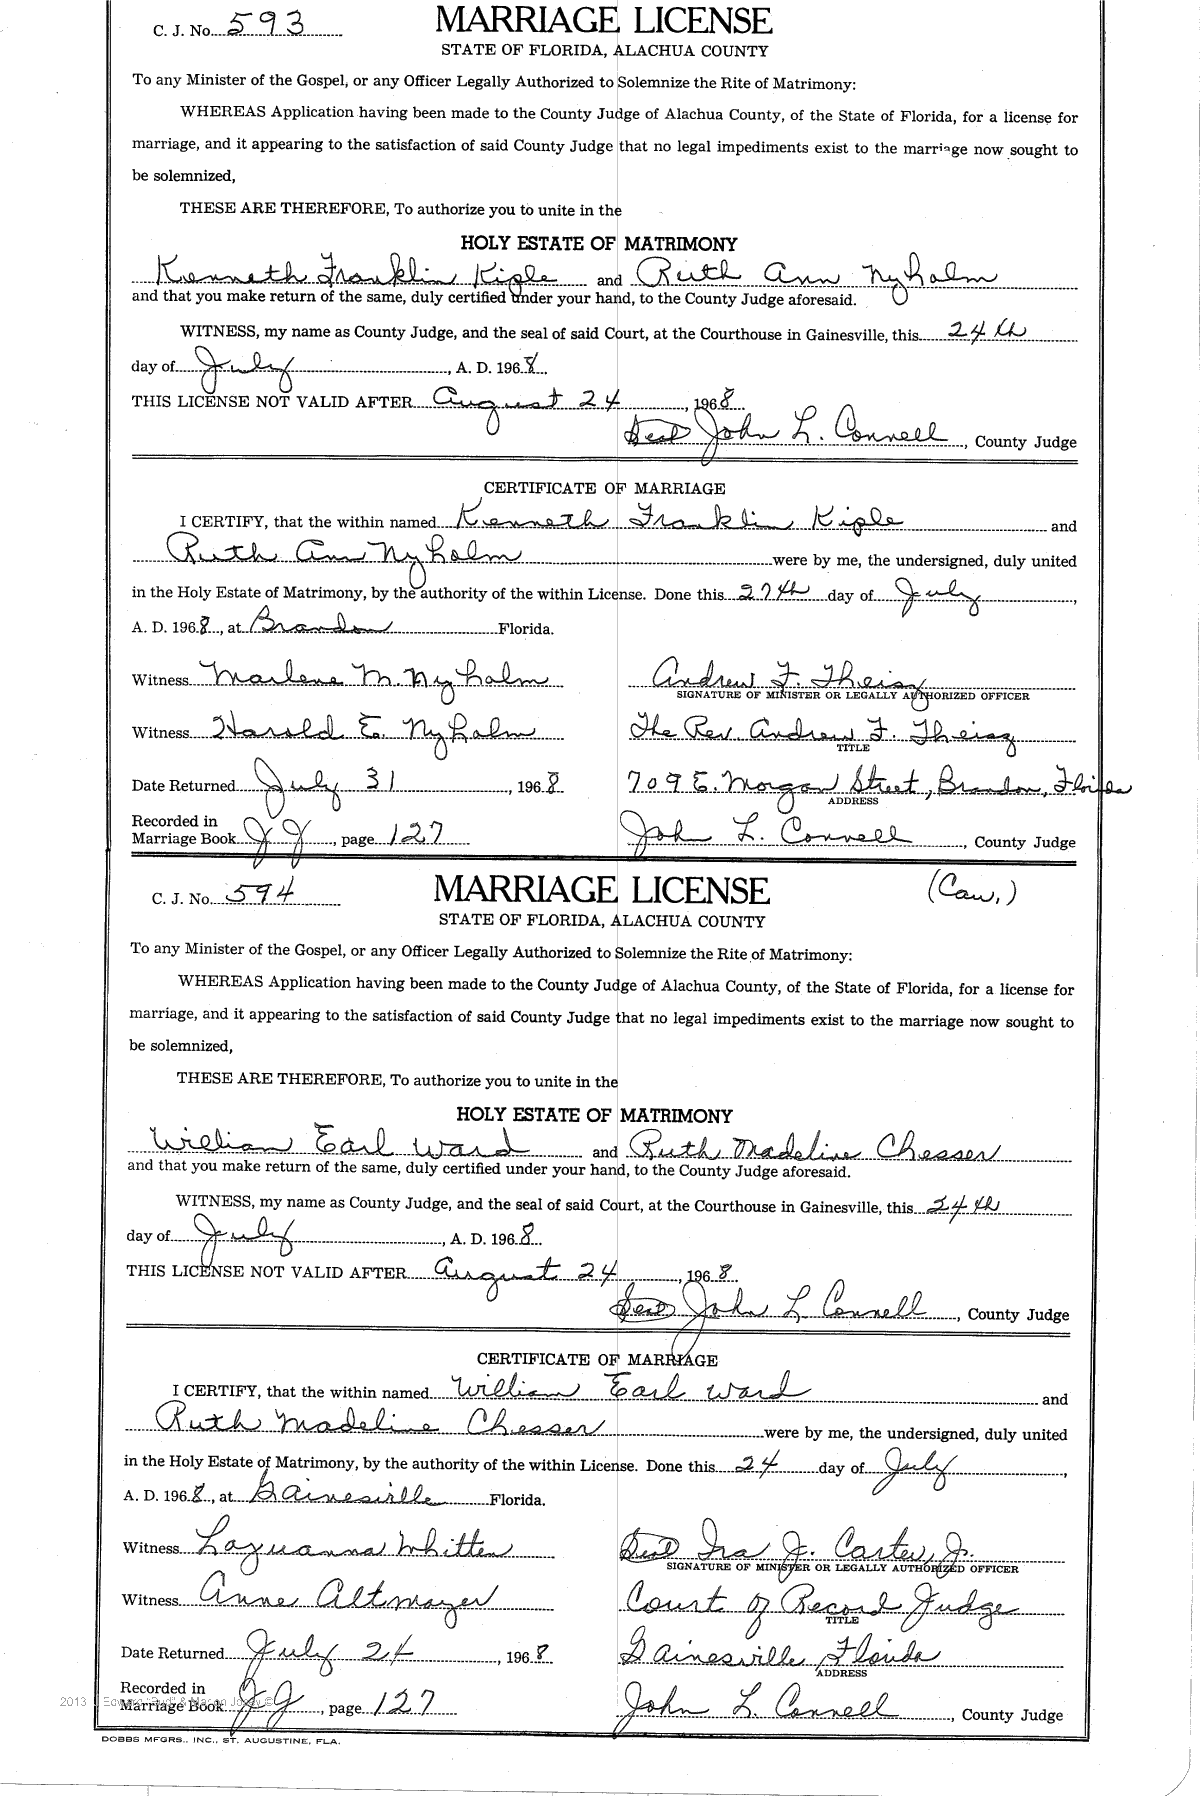 C. J. No. 593
MARRIAGE LICENSE
STATE OF FLORIDA, ALACHUA COUNTY
To any Minister of the Gospel, or any Officer Legally Authorized to Solemnize the Rite of Matrimony:
WHEREAS Application having been made to the County Judge of Alachua County, of the State of Florida, for a license for
marriage, and it appearing to the satisfaction of said County Judge that no legal impediments exist to the marriage now sought to
be solemnized,
THESE ARE THEREFORE, To authorize you to unite in the
HOLY ESTATE OF MATRIMONY
Kenneth Franklin Kiple and Ruth Ann Nyholm
and that you make return of the same, duly certified under your hand, to the County Judge aforesaid.
WITNESS, my name as County Judge, and the seal of said Court, at the Courthouse in Gainesville, this 24th
day of July, A. D. 1968.
THIS LICENSE NOT VALID AFTER August 24, 1968
Seal John L. Connell, County Judge
CERTIFICATE OF MARRIAGE
I CERTIFY, that the within named Kenneth Franklin Kiple and
Ruth Ann Nyholm were by me, the undersigned, duly united
in the Holy Estate of Matrimony, by the authority of the within License. Done this 27th day of July,
A. D. 1968, at Brandon Florida.
Witness Marlene M. Nyholm Andrew F. Theisz
SIGNATURE OF MINISTER OR LEGALLY AUTHORIZED OFFICER
Witness Harold E. Nyholm The Rev. Andrew F. Theisz
TITLE
Date Returned July 31, 1968 709 E. Morgan Street, Brandon, Florida
ADDRESS
Recorded in
Marriage Book JJ, page 127 John L. Connell, County Judge
C. J. No. 594
MARRIAGE LICENSE (Caw.)
STATE OF FLORIDA, ALACHUA COUNTY
To any Minister of the Gospel, or any Officer Legally Authorized to Solemnize the Rite of Matrimony:
WHEREAS Application having been made to the County Judge of Alachua County, of the State of Florida, for a license for
marriage, and it appearing to the satisfaction of said County Judge that no legal impediments exist to the marriage now sought to
be solemnized,
THESE ARE THEREFORE, To authorize you to unite in the
HOLY ESTATE OF MATRIMONY
William Earl Ward and Ruth Madeline Chesser
and that you make return of the same, duly certified under your hand, to the County Judge aforesaid.
WITNESS, my name as County Judge, and the seal of said Court, at the Courthouse in Gainesville, this 24th
day of July, A. D. 1968.
THIS LICENSE NOT VALID AFTER August 24, 1968
Seal John L. Connell, County Judge
CERTIFICATE OF MARRIAGE
I CERTIFY, that the within named William Earl Ward and
Ruth Madeline Chesser were by me, the undersigned, duly united
in the Holy Estate of Matrimony, by the authority of the within License. Done this 24 day of July,
A. D. 1968, at Gainesville Florida.
Witness Lazuanna Whitten Seal Ira J. Carter, Jr.
SIGNATURE OF MINISTER OR LEGALLY AUTHORIZED OFFICER
Witness Anne Altmayer Court of Record Judge
TITLE
Date Returned July 24, 1968 Gainesville, Florida
ADDRESS
Recorded in
Marriage Book JJ, page 127 John L. Connell, County Judge
DOBBS MFGRS., INC., ST. AUGUSTINE, FLA.